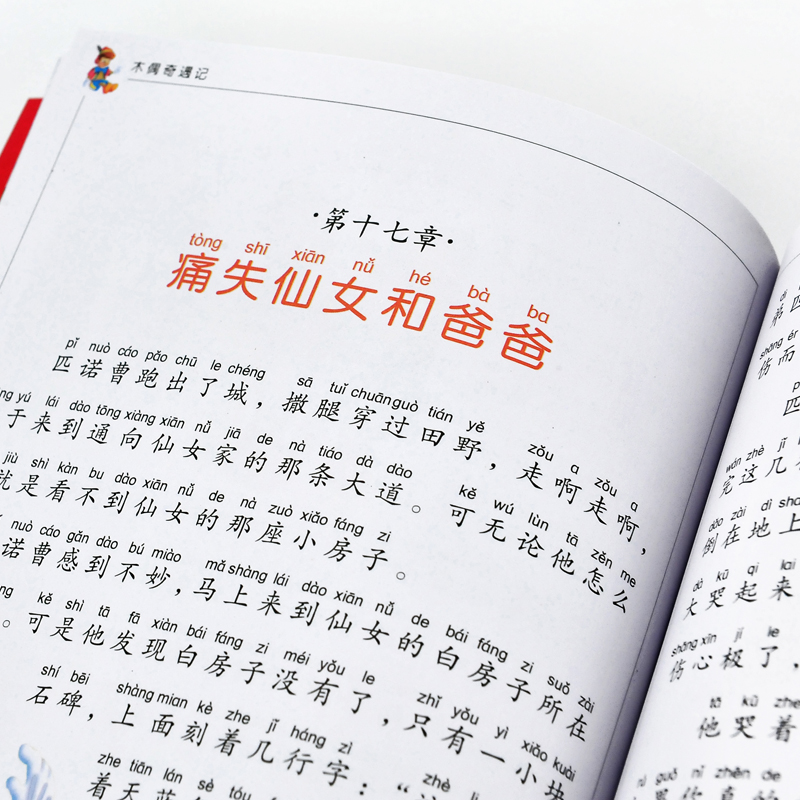 木偶奇遇记
·第十七章·
tòng shī xiān nǚ hé bà ba
痛失仙女和爸爸
pǐ nuò cáo pǎo chū le chéng sā tuǐ chuān guò tián yě zǒu a zǒu a
匹诺曹跑出了城，撒腿穿过田野，走啊走啊，
yú lái dào tōng xiàng xiān nǚ jiā de nà tiáo dà dào kě wú lùn tā zěn me
于来到通向仙女家的那条大道。可无论他怎么
jiù shì kàn bu dào xiān nǚ de nà zuò xiǎo fáng zi
就是看不到仙女的那座小房子。
nuò cáo gǎn dào bú miào mǎ shàng lái dào xiān nǚ de bái fáng zi suǒ zài
诺曹感到不妙，马上来到仙女的白房子所在
kě shì tā fā xiàn bái fáng zi méi yǒu le zhǐ yǒu yì xiǎo kuài
。可是他发现白房子没有了，只有一小块
shí bēi shàng mian kè zhe jǐ háng zì
石碑，上面刻着几行字：“
zhe tiān lán sè tóu
着天蓝
shāng ér
伤而
wán zhè jǐ
完这几
dǎo zài dì shang
倒在地上
dà kū qi lai
大哭起来
shāng xīn jí le
伤心极了，
tā kū zhe
他哭着
guǒ nǐ zhēn de